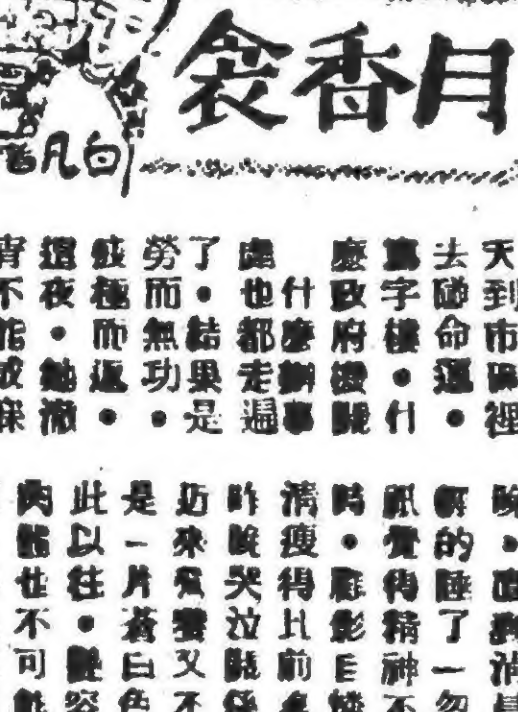 月香衾
白凡著
天到市裡
去碰命運。
寫字樓。什
麼政府機關
什麼辦事
處也都走遍
了。結果是
勞而無功。
疲極而返。
這夜。她徹
宵不能成寐
晚。
的睡了一忽
祇覺得精神不
時。影自憐
清瘦得比前
昨晚哭泣後
近來又不
是一片蒼白色
此以往。容
肉體也不可能